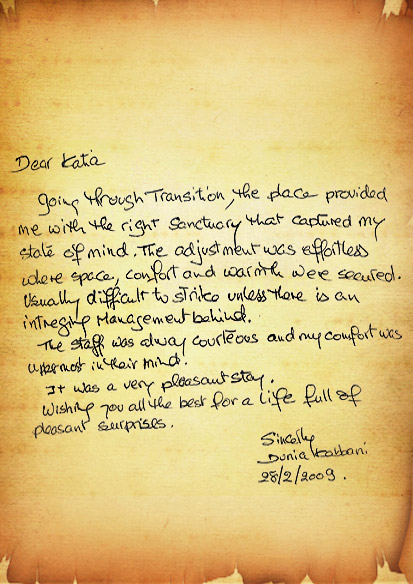 Dear Katia
Going through Transition, the place provided
me with the right Sanctuary that captured my
state of mind. The adjustment was effortless
where space, comfort and warmth were secured.
Usually difficult to strike unless there is an
intreging Management behind.
The staff was alway courteous and my comfort was
uppermost in their mind.
It was a very pleasant stay.
Wishing you all the best for a life full of
pleasant surprises.
Sincerly
Dunia Kabbani
28/2/2009.